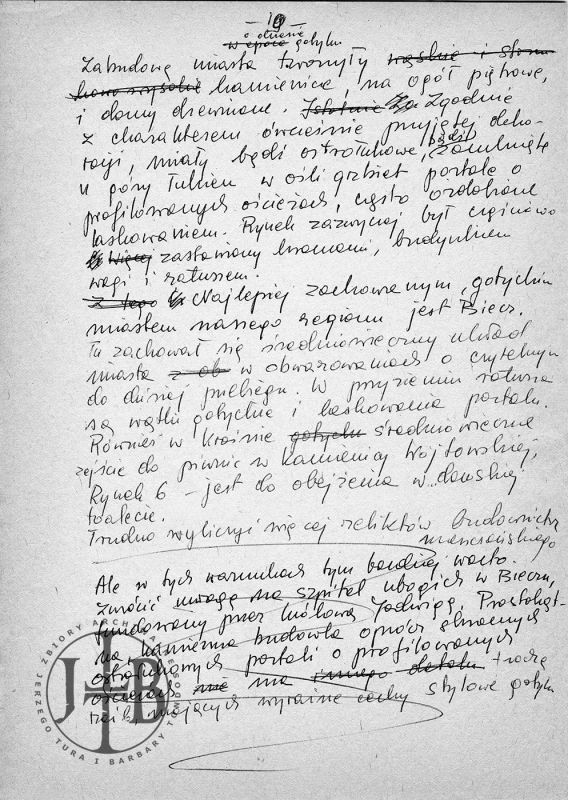 — 10 —
o okresie
w epoce gotyku
Zabudowę miasta tworzyły wąskie i
kamienice, na ogół piętrowe,
i domy drewniane. Istotnie Za Zgodnie
z charakterem ówcześnie przyjętej deko-
racji, miały bądź ostrołukowe, bądź zamknięte
u góry łukiem w ośli grzbiet portale o
profilowanych ościeżach, często ozdobione
laskowaniem. Rynek zazwyczaj był częściowo
więcej zastawiony kramami, budynkiem
wagi i ratuszem.
z tego Najlepiej zachowanym, gotyckim
miastem naszego regionu jest Biecz.
Tu zachował się średniowieczny układ
miasta z ob w obwarowaniach o czytelnym
do dzisiaj przebiegu. W przyziemiu ratusza
są wątki gotyckie i laskowania portalu.
Również w Krośnie gotycku średniowieczne
zejście do piwnic w kamienicy Wojtowskiej,
Rynek 6 – jest do obejrzenia w damskiej
toalecie.
Trudno wyliczyć więcej reliktów budownictwa
mieszczańskiego
Ale w tych warunkach tym bardziej warto
zwrócić uwagę na szpital ubogich w Bieczu,
fundowany przez królową Jadwigę. Prostokąt-
na kamienna budowla oprócz skromnych
ostrołukowych portali o profilowanych
ościeżach nie ma innego detalu
mających wyraźne cechy stylowe gotyku
ZBIORY ARCHIWALNE
JERZEGO TURA I BARBARY TONDOS
JTB